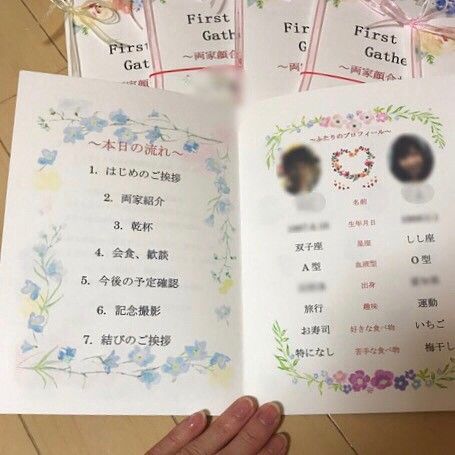 First
Gathe
～両家顔合
First
Gathe
～両家顔合
First
Gathe
～両家顔合
First
Gathe
～両家顔合
～本日の流れ～
1. はじめのご挨拶
2. 両家紹介
3. 乾杯
4. 会食、歓談
5. 今後の予定確認
6. 記念撮影
7. 結びのご挨拶
～ふたりのプロフィール～
名前
生年月日
双子座 星座 しし座
A型 血液型 O型
出身
旅行 趣味 運動
お寿司 好きな食べ物 いちご
特になし 苦手な食べ物 梅干し